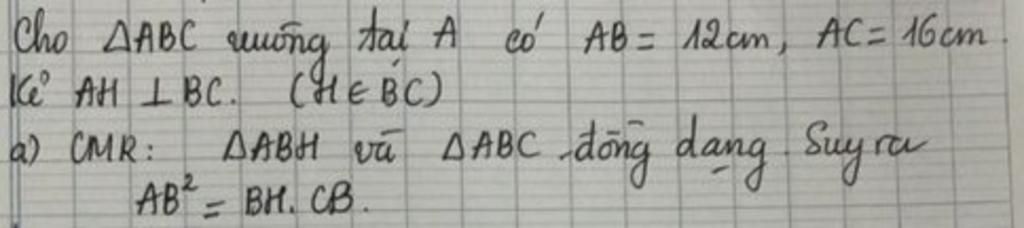 Cho ΔABC vuông tại A có AB = 12cm, AC = 16cm.
Kẻ AH ⊥ BC. (H ∈ BC)
a) CMR: ΔABH và ΔABC đồng dạng. Suy ra
AB² = BH. CB.